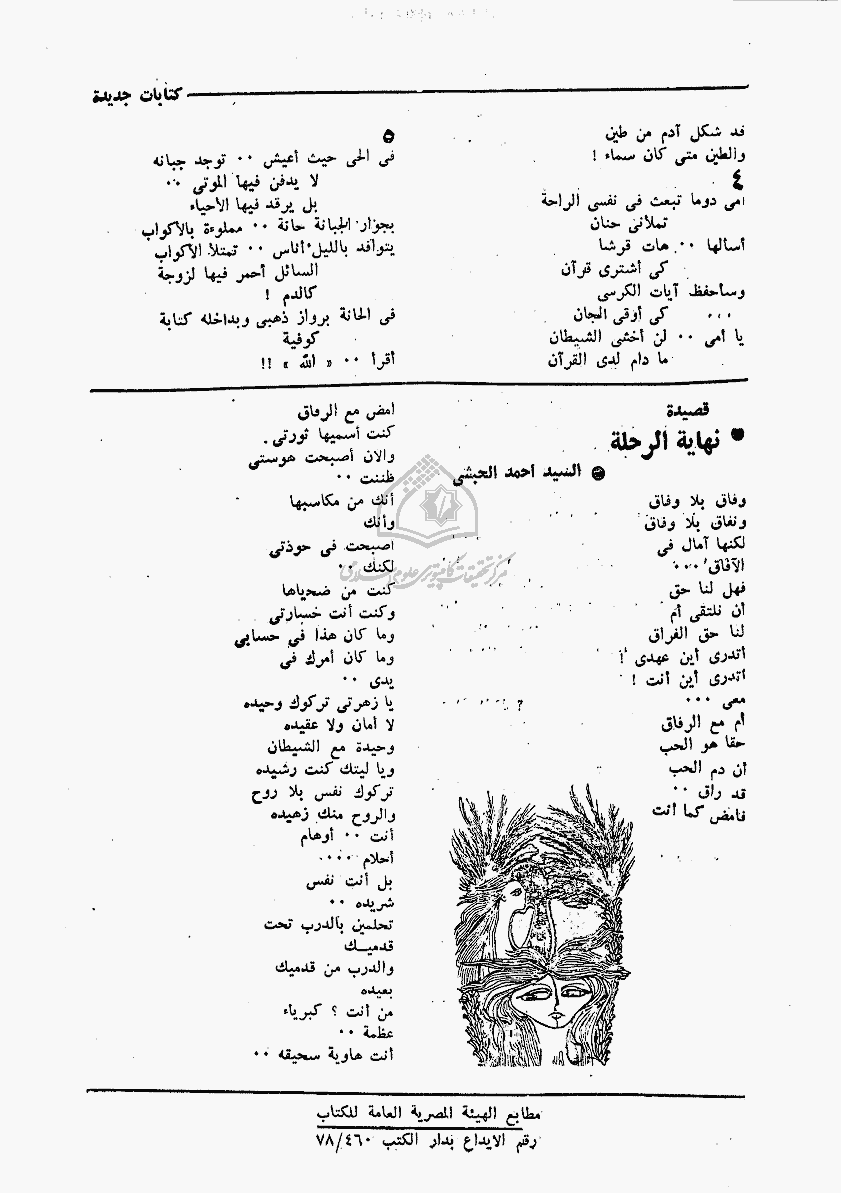 كتابات جديدة
قد شكل آدم من طين
والطين متى كان سماء !
٤
أمى دوما تبعث فى نفسى الراحة
تملأنى حنان
أسألها ٠٠ هات قرشا
كى أشترى قرآن
وسأحفظ آيات الكرسى
كى أوقى الجان
يا أمى ٠٠ لن أخشى الشيطان
ما دام لدى القرآن
٥
فى الحى حيث أعيش ٠٠ توجد جبانه
لا يدفن فيها الموتى ٠٠
بل يرقد فيها الأحياء
بجوار الجبانة حانة ٠٠ مملوءة بالأكواب
يتوافد بالليل أناس ٠٠ تمتلأ الأكواب
السائل أحمر فيها لزوجة
كالدم !
فى الحانة برواز ذهبى وبداخله كتابة
كوفية
أقرأ ٠٠ « الله » !!
قصيدة
● نهاية الرحلة
● السيد احمد الحبشى
وفاق بلا وفاق
ونفاق بلا وفاق
لكنها آمال فى
الآفاق ٠٠٠
فهل لنا حق
أن نلتقى أم
لنا حق الفراق
أتدرى أين عهدى !
أتدرى أين أنت !
معى ٠٠٠
أم مع الرفاق
حقا هو الحب
أن دم الحب
قد راق ٠٠
فامض كما أنت
أمض مع الرفاق
كنت أسميها ثورتى .
والان أصبحت هوستى
ظننت ٠٠
أنك من مكاسبها
وأنك
أصبحت فى حوذتى
لكنك ٠٠
كنت من ضحياها
وكنت أنت خسارتى
وما كان هذا فى حسابى
وما كان أمرك فى
يدى ٠٠
يا زهرتى تركوك وحيده
لا أمان ولا عقيده
وحيدة مع الشيطان
ويا ليتك كنت رشيده
تركوك نفس بلا روح
والروح منك زهيده
أنت ٠٠ أوهام
أحلام ٠٠٠٠
بل أنت نفس
شريده ٠٠
تحلمين بالدرب تحت
قدميـك
والدرب من قدميك
بعيده
من أنت ؟ كبرياء
عظمة ٠٠
أنت هاوية سحيقه ٠٠
مركز تحقيقات كامپيوترى علوم اسلامى
مطابع الهيئة المصرية العامة للكتاب
رقم الايداع بدار الكتب ٧٨/٤٦٠